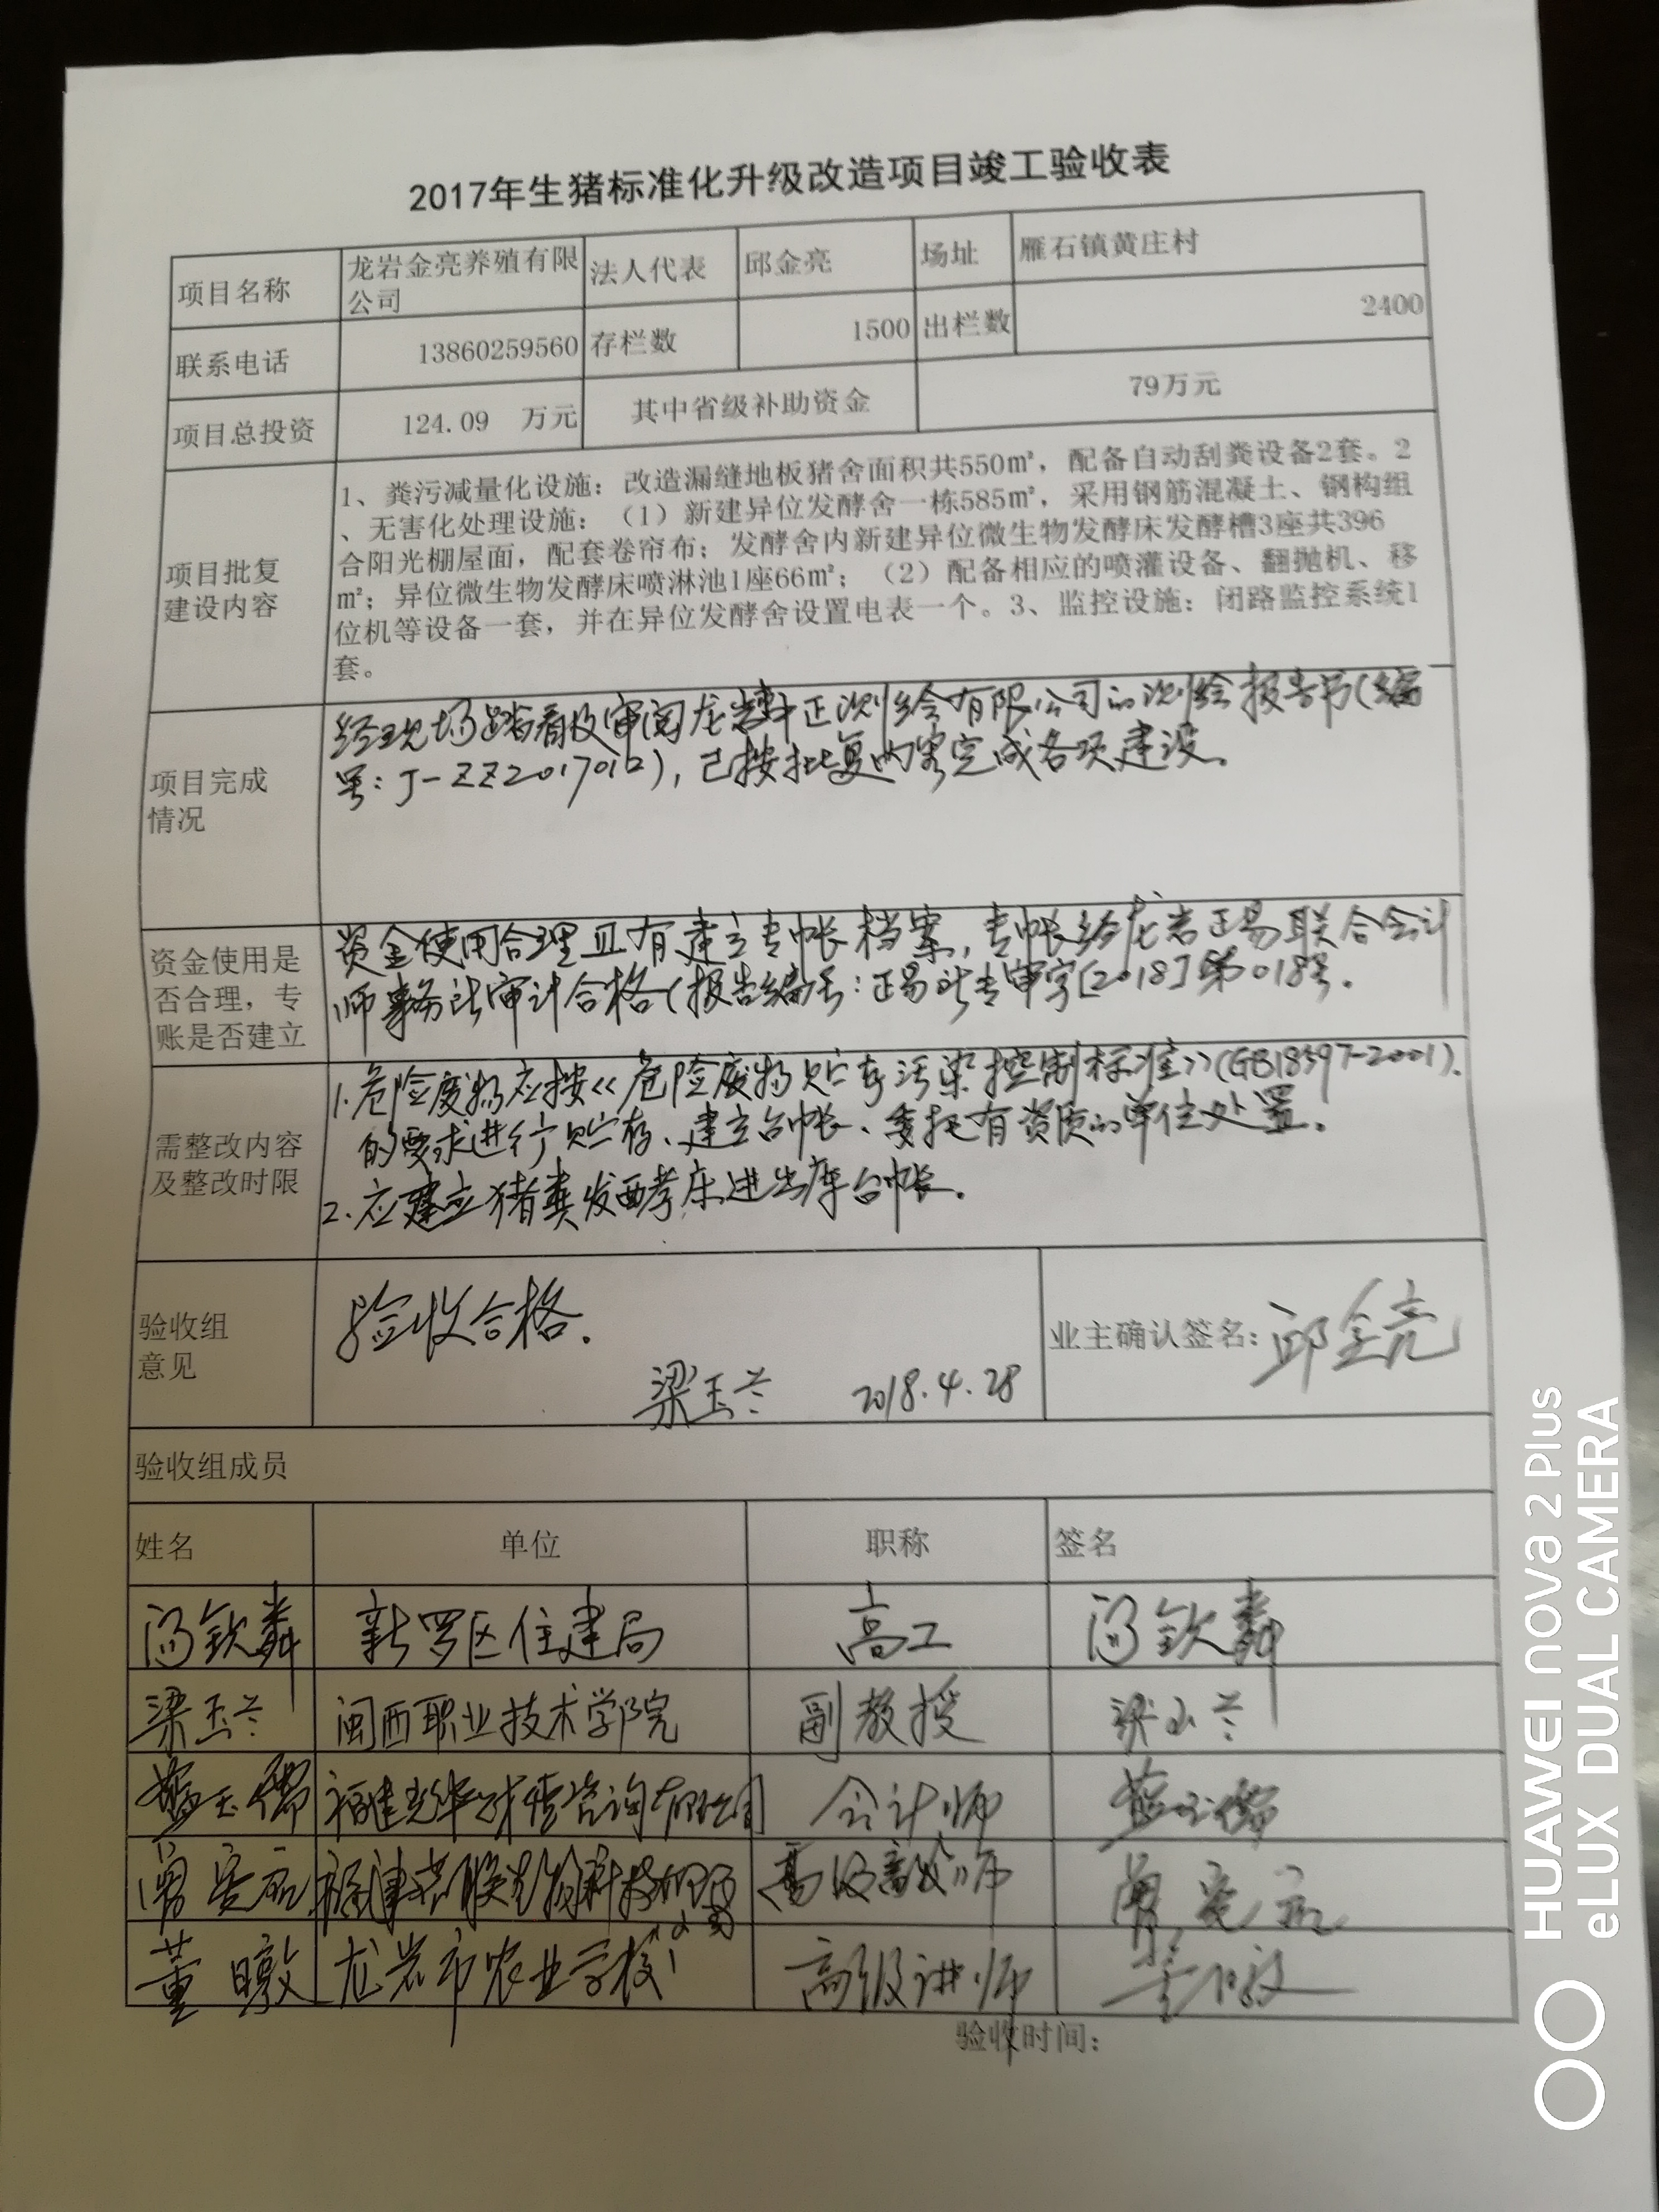 2017年生猪标准化升级改造项目竣工验收表
项目名称 龙岩金亮养殖有限公司 法人代表 邱金亮 场址 雁石镇黄庄村
联系电话 13860259560 存栏数 1500 出栏数 2400
项目总投资 124.09 万元 其中省级补助资金 79万元
项目批复
建设内容
1、粪污减量化设施：改造漏缝地板猪舍面积共550㎡，配备自动刮粪设备2套。2
、无害化处理设施：（1）新建异位发酵舍一栋585㎡，采用钢筋混凝土、钢构组
合阳光棚屋面，配套卷帘布；发酵舍内新建异位微生物发酵床发酵槽3座共396
㎡；异位微生物发酵床喷淋池1座66㎡；（2）配备相应的喷灌设备、翻抛机、移
位机等设备一套，并在异位发酵舍设置电表一个。3、监控设施：闭路监控系统1
套。
项目完成
情况
经现场踏看及审阅龙岩 正测绘有限公司的测绘报告书(编
号: J-ZZ201701 ), 已按批复内容完成各项建设。
资金使用是
否合理，专
账是否建立
资金使用合理且有建立专帐档案, 专帐经龙岩正易联合会计
师事务所审计合格(报告编号: 正易所专审字[2018]第018号.
需整改内容
及整改时限
1.危险废物应按<<危险废物贮存污染控制标准>>(GB18597-2001).
的要求进行贮存、建立台帐、委托有资质的单位处置。
2.应建立猪粪发酵床进出库台帐。
验收组
意见
验收合格.
梁玉兰 2018.4.28
业主确认签名: 邱金亮
验收组成员
姓名 单位 职称 签名
新罗区住建局 高工
梁玉兰 闽西职业技术学院 副教授 梁玉兰
福建 咨询有限公司 会计师
高级 师
董暾 龙岩市农业学校 高级讲师 董暾
验收时间:
HUAWEI nova 2 Plus
eLUX DUAL CAMERA